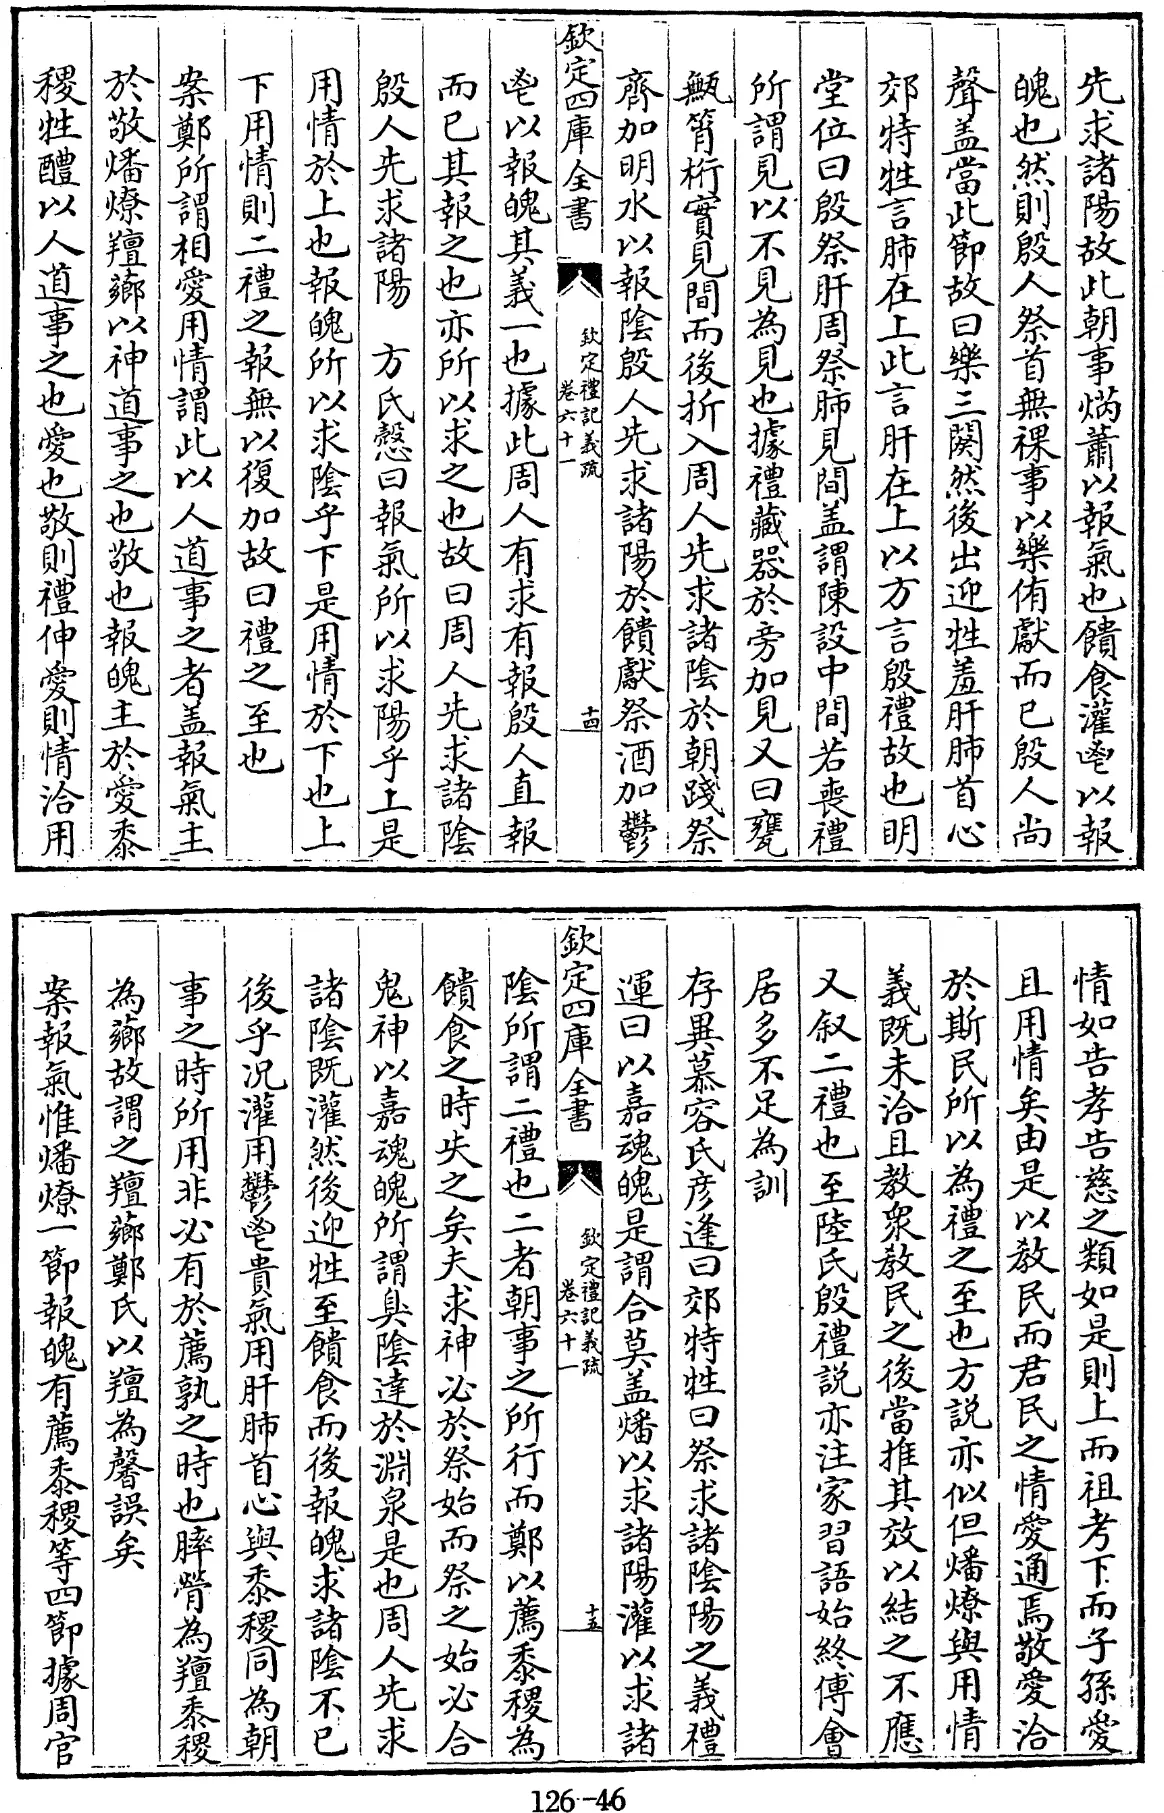 先求諸陽故此朝事焫蕭以報氣也饋食灌鬯以報
魄也然則殷人祭首無祼事以樂侑獻而已殷人尚
聲盖當此節故曰樂三闋然後出迎牲羞肝肺首心
郊特牲言肺在上此言肝在上以方言殷禮故也明
堂位曰殷祭肝周祭肺見間盖謂陳設中間若喪禮
所謂見以不見為見也據禮藏器於旁加見又曰甕
甒筲桁實見間而後折入周人先求諸陰於朝踐祭
齊加明水以報陰殷人先求諸陽於饋獻祭酒加鬱
欽定四庫全書 欽定禮記義疏 卷六十一 十四
鬯以報魄其義一也據此周人有求有報殷人直報
而已其報之也亦所以求之也故曰周人先求諸陰
殷人先求諸陽 方氏慤曰報氣所以求陽乎上是
用情於上也報魄所以求陰乎下是用情於下也上
下用情則二禮之報無以復加故曰禮之至也
案鄭所謂相愛用情謂此以人道事之者盖報氣主
於敬燔燎羶薌以神道事之也敬也報魄主於愛黍
稷牲醴以人道事之也愛也敬則禮伸愛則情洽用
情如告孝告慈之類如是則上而祖考下而子孫愛
且用情矣由是以教民而君民之情愛通焉敬愛洽
於斯民所以為禮之至也方説亦似但燔燎與用情
義既未洽且教衆教民之後當推其效以結之不應
又叙二禮也至陸氏殷禮説亦注家習語始終傅會
居多不足為訓
存異慕容氏彦逢曰郊特牲曰祭求諸陰陽之義禮
運曰以嘉魂魄是謂合莫盖燔以求諸陽灌以求諸
欽定四庫全書 欽定禮記義疏 卷六十一 十五
陰所謂二禮也二者朝事之所行而鄭以薦黍稷為
饋食之時失之矣夫求神必於祭始而祭之始必合
鬼神以嘉魂魄所謂臭陰達於淵泉是也周人先求
諸陰既灌然後迎牲至饋食而後報魄求諸陰不已
後乎况灌用鬱鬯貴氣用肝肺首心與黍稷同為朝
事之時所用非必有於薦孰之時也膟膋為羶黍稷
為薌故謂之羶薌鄭氏以羶為馨誤矣
案報氣惟燔燎一節報魄有薦黍稷等四節據周官
126-46